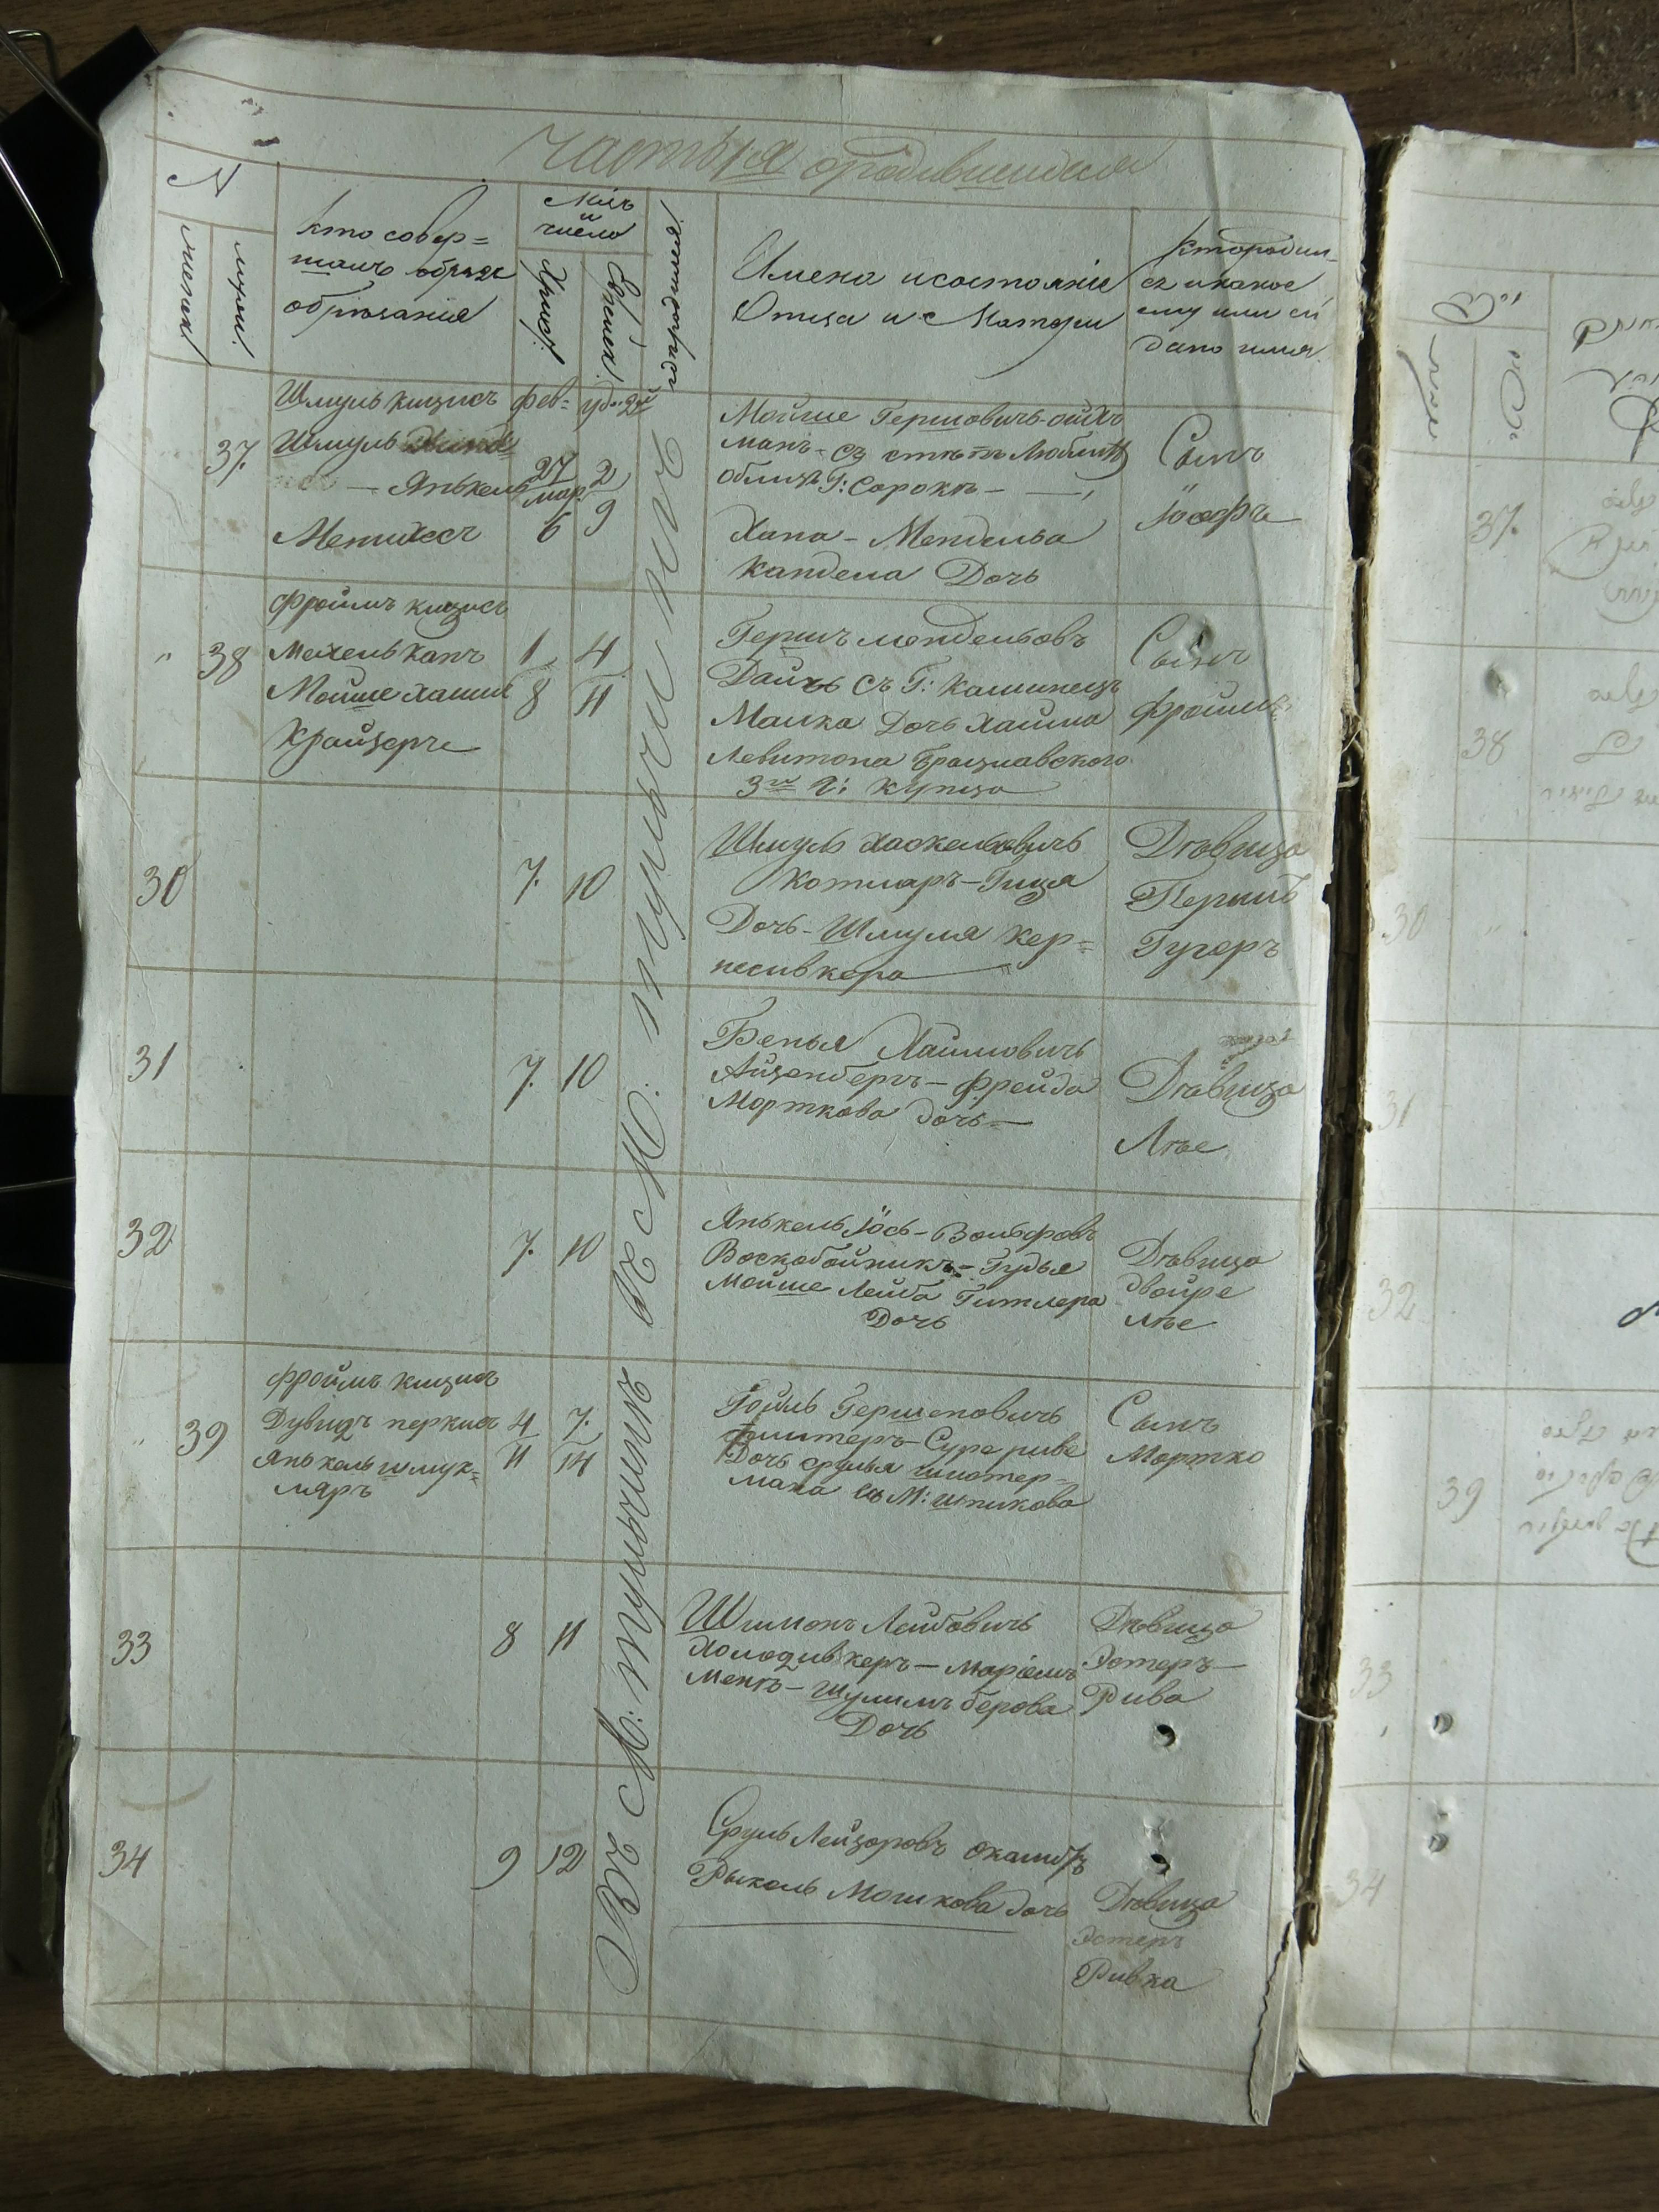 Часть 1я о родившихся
№
женск
мужск
Кто совер=
шалъ обрядъ
обрѣзанія
Мѣсъ
и
число
Христ:
Еврейск:
гдѣ родился
Имена и состояніе
Отца и Матери
Кто родил_
ся и какое
ему или ей
дано имя
37.
Шмуль Кицисъ
Шмуль
— Янькель
Фев=
27
мар:
6
2
9
Мойше Гершовичъ
манъ - съ
Г: Сорокъ —
Хана - Мендельва
Кандела Дочь
Сынъ
Іосфъ
"
38
Фроимъ Кицисъ
Мехель Канъ
Мойше Хаимъ
Крайзеръ
1
8
4
11
Гершъ Мендельовъ
Дайчъ съ Г: Каминецъ
Малка Дочь Хаима
Левитона Брацлавского
3й Г: Купца
Сынъ
Фроимъ
30
7.
10
Шмуль Хаскельовичъ
Котляръ - Гиця
Дочь - Шмуля Кер=
несивкера
Дѣвица
Перыль
Гугеръ
31
7.
10
Бенья Хаимовичъ
Айзенбергъ - Фрейда
Морткова дочь —
Дѣвица
Лѣе
32
7.
10
Янькель Іось - Вольфовъ
Воскобойникъ - Гудья
Мойше Лейба Гитлера
Дочь
Дѣвица
Двойре
Лѣе
"
39
Фроимъ Кицисъ
Дувидъ перкисъ
Янькель шмук=
ляръ
4
11
7.
14
Гоиль Гершеновичъ
- Суре риве
Дочь сруля шпотер=
мана съ М: шпикова
Сынъ
Мортко
33
8
11
Шимонъ Лейбовичъ
Холодивкеръ — Маріемъ
Менѣ - Шулимъ берова
Дочь
Дѣвица
Эстеръ —
Рива
34
9
12
Сруль Лейзоровъ
Рыкель Мошкова дочь
Дѣвица
Эстеръ
Ривка
Въ М: тульчинѣ Въ М: тульчинѣ
37.
38
30
31
32
39
33
34